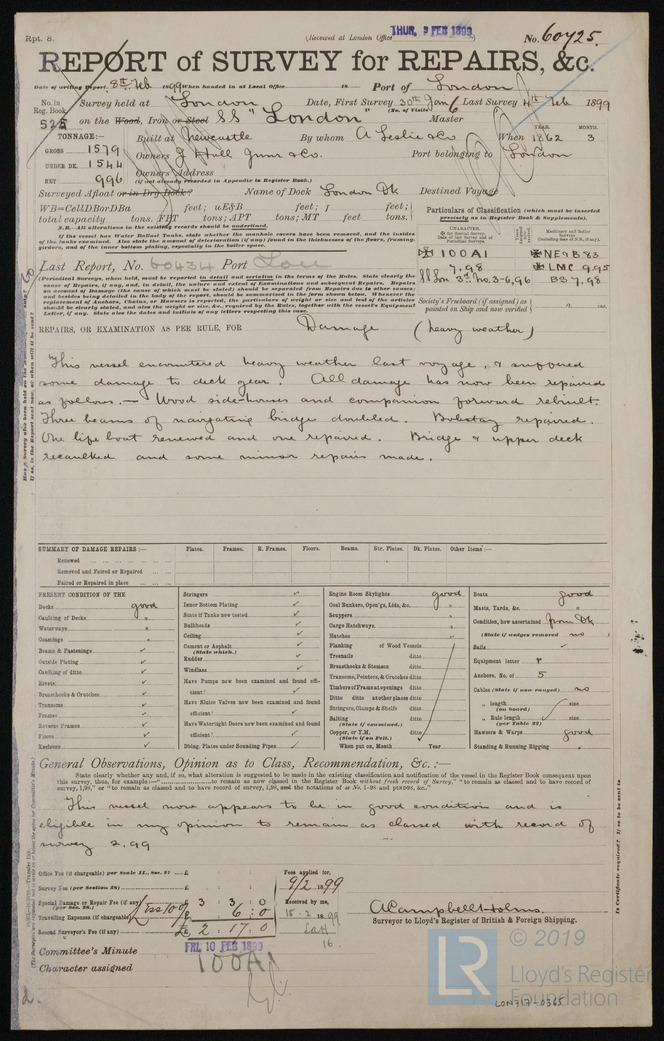 Rpt. 8.
(Received at London Office THUR, 9 FEB 1899)
No. 60425.
REPORT of SURVEY for REPAIRS, &c.
Date of writing Report 8th Feb 1899 When handed in at Local Office 18 Port of London
No. in Reg. Book. 525 Survey held at London Date, First Survey 30th Jan Last Survey 4th Feb 1899
(No. of Visits 6)
on the Wood, Iron or Steel SS "London" Master
TONNAGE:—
Built at Newcastle By whom A Leslie & Co When 1862 3
YEAR. MONTH.
GROSS 1579
Owners J Hall Junr & Co. Port belonging to London
UNDER DK. 1544
Owners Address
(If not already recorded in Appendix to Register Book.)
NET 996
Surveyed Afloat or in Dry Dock? Name of Dock London Dk Destined Voyage
WB=CellDBorDBa feet; uE&B feet; f feet;
total capacity tons. FPT tons; APT tons; MT feet tons.
Particulars of Classification (which must be inserted precisely as in Register Book & Supplements).
N.B.—All alterations in the existing records should be underlined.
100A1
7.98
SSLon 3rd No.3-6,96
NE&B83
LMC 9.95
BS 7.98
Last Report, No. 60434 Port Lon
Society's Freeboard (if assigned) as painted on Ship and now verified ft. ins.
REPAIRS, OR EXAMINATION AS PER RULE, FOR Damage (heavy weather)
This vessel encountered heavy weather last voyage, & suffered
some damage to deck gear. All damage has now been repaired
as follows.— Wood side-houses and companion forward rebuilt.
Three beams of navigating bridge doubled. Bobstay repaired.
One life boat renewed and one repaired. Bridge & upper deck
recaulked and some minor repairs made.
SUMMARY OF DAMAGE REPAIRS:— Plates. Frames. R. Frames. Floors. Beams. Str. Plates. Dk. Plates. Other Items:—
Renewed
Removed and Faired or Repaired
Faired or Repaired in place
PRESENT CONDITION OF THE
Decks good
Caulking of Decks "
Waterways "
Coamings "
Beams & Fastenings
Outside Plating
Caulking of ditto
Rivets
Breasthooks & Crutches
Transoms
Frames
Reverse Frames
Floors
Keelsons
Stringers
Inner Bottom Plating
State if Tanks now tested
Bulkheads
Ceiling
Cement or Asphalt
(State which.)
Rudder
Windlass
Have Pumps now been examined and found efficient?
Have Sluice Valves now been examined and found efficient?
Have Watertight Doors now been examined and found efficient?
Dblng. Plates under Sounding Pipes
Engine Room Skylights good
Coal Bunkers, Open'gs, Lids, &c. "
Scuppers "
Cargo Hatchways "
Hatches "
Planking of Wood Vessels
Treenails ditto
Breasthooks & Stemson ditto
Transoms, Pointers, & Crutches ditto
Timbers of Frame at openings ditto
Ditto ditto at other places ditto
Stringers, Clamps & Shelfs ditto
Salting ditto
(State if examined.)
Copper, or Y.M. ditto
(State if on Felt.)
When put on, Month Year
Boats good
Masts, Yards, &c. "
Condition, how ascertained from Dk
(State if wedges removed no)
Sails
Equipment letter r
Anchors, No. of 5
Cables (State if now ranged) no
" length size
(on board)
" Rule length size
(per Table 22)
Hawsers & Warps good
Standing & Running Rigging "
General Observations, Opinion as to Class, Recommendation, &c. :—
State clearly whether any and, if so, what alteration is suggested to be made in the existing classification and notification of the vessel in the Register Book consequent upon
This vessel now appears to be in good condition and is
eligible in my opinion to remain as classed with record of
survey 2.99
Office Fee (if chargeable) per Scale II., Sec. 27 £
Survey Fee (per Section 28) £
Special Damage or Repair Fee (if any) (per Sec. 28.) less 10% 3 : 3 : 0
Travelling Expenses (if chargeable) 6 : 0
Second Surveyor's Fee (if any) £ 2 : 17 : 0
Fees applied for, 9/2 1899
Received by me, 15.2.1899
16.
A Campbell Holms.
Surveyor to Lloyd's Register of British & Foreign Shipping.
Committee's Minute FRI, 10 FEB 1899
Character assigned 100A1
LR
© 2019
Lloyd's Register
Foundation
LON717-0365